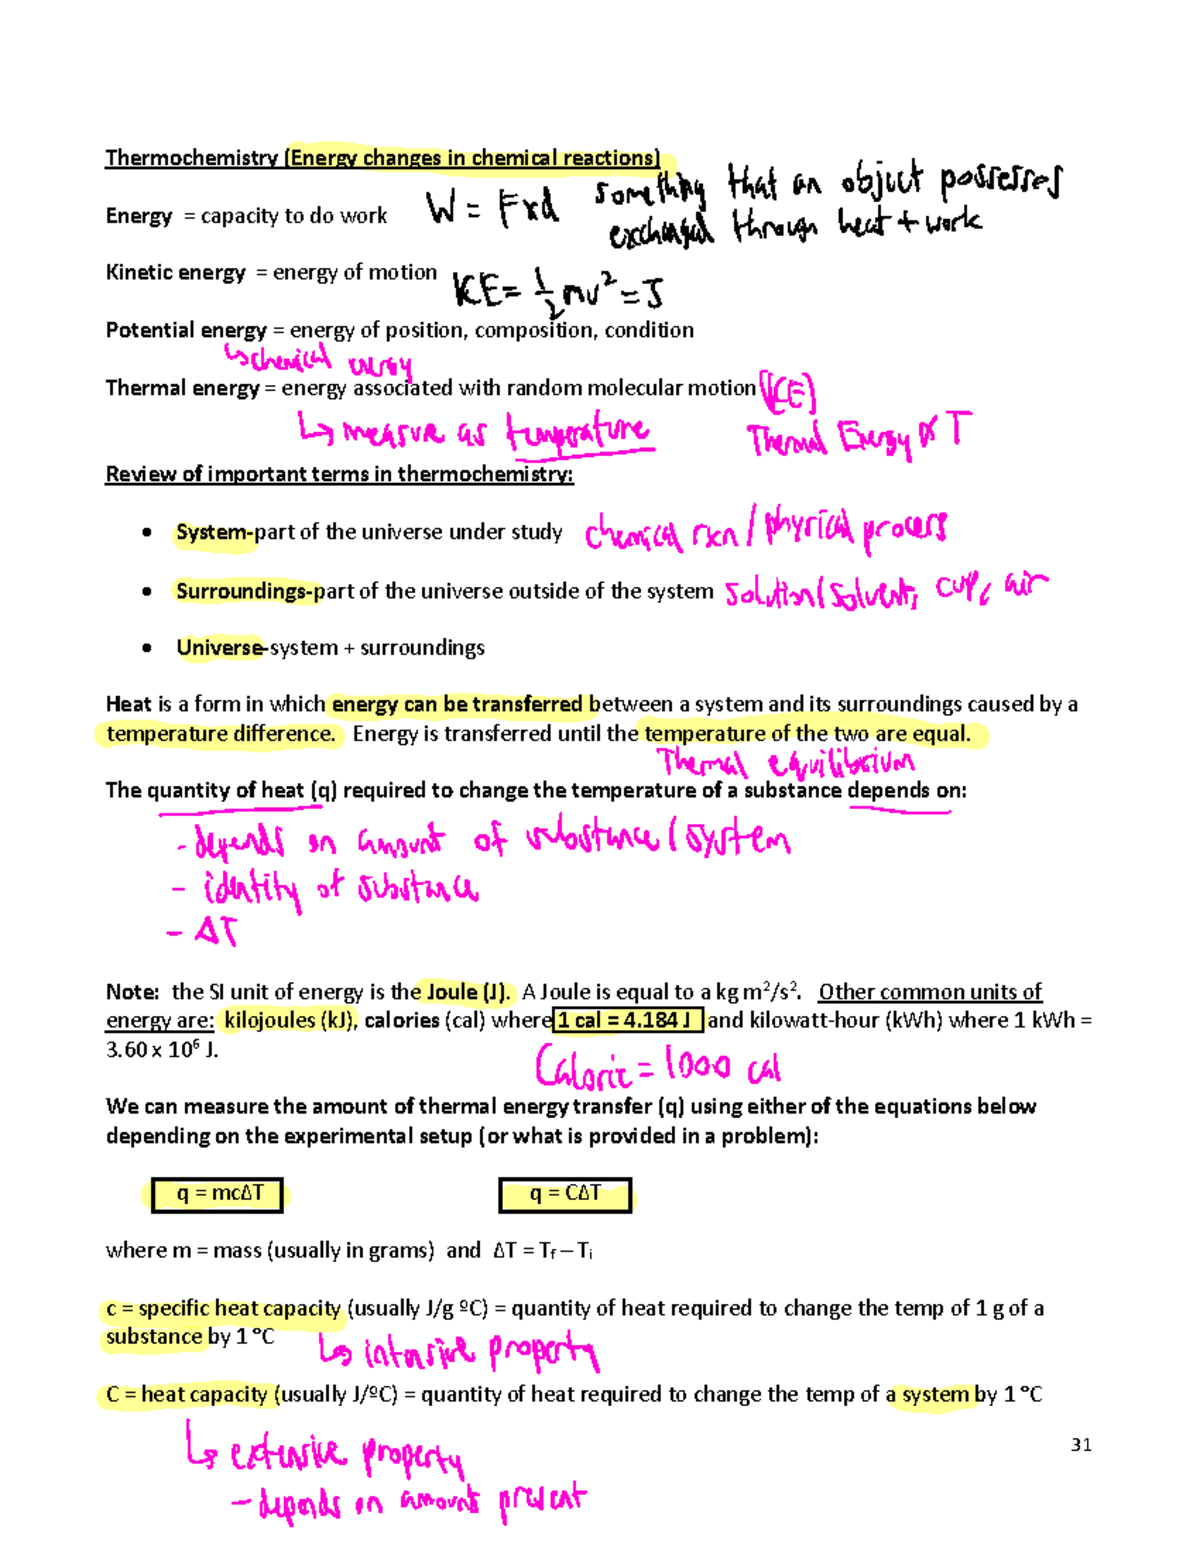 Thermochemistry (Energy changes in chemical reactions)
Energy = capacity to do work W = Fxd something that an object possesses
exchanged through heat + work
Kinetic energy = energy of motion KE = 1/2 mv² = J
Potential energy = energy of position, composition, condition
↳ chemical energy
Thermal energy = energy associated with random molecular motion (KE)
↳ measure as temperature Thermal Energy ∝ T
Review of important terms in thermochemistry:
• System-part of the universe under study chemical rxn / physical process
• Surroundings-part of the universe outside of the system solution/solvent, cup, air
• Universe-system + surroundings
Heat is a form in which energy can be transferred between a system and its surroundings caused by a
temperature difference. Energy is transferred until the temperature of the two are equal.
Thermal equilibrium
The quantity of heat (q) required to change the temperature of a substance depends on:
- depends on amount of substance/system
- identity of substance
- ΔT
Note: the SI unit of energy is the Joule (J). A Joule is equal to a kg m²/s². Other common units of
energy are: kilojoules (kJ), calories (cal) where 1 cal = 4.184 J and kilowatt-hour (kWh) where 1 kWh =
3.60 x 10⁶ J.
Calorie = 1000 cal
We can measure the amount of thermal energy transfer (q) using either of the equations below
depending on the experimental setup (or what is provided in a problem):
q = mcΔT q = CΔT
where m = mass (usually in grams) and ΔT = Tf – Ti
c = specific heat capacity (usually J/g ºC) = quantity of heat required to change the temp of 1 g of a
substance by 1 °C
↳ intensive property
C = heat capacity (usually J/ºC) = quantity of heat required to change the temp of a system by 1 °C
31
↳ extensive property
- depends on amount present